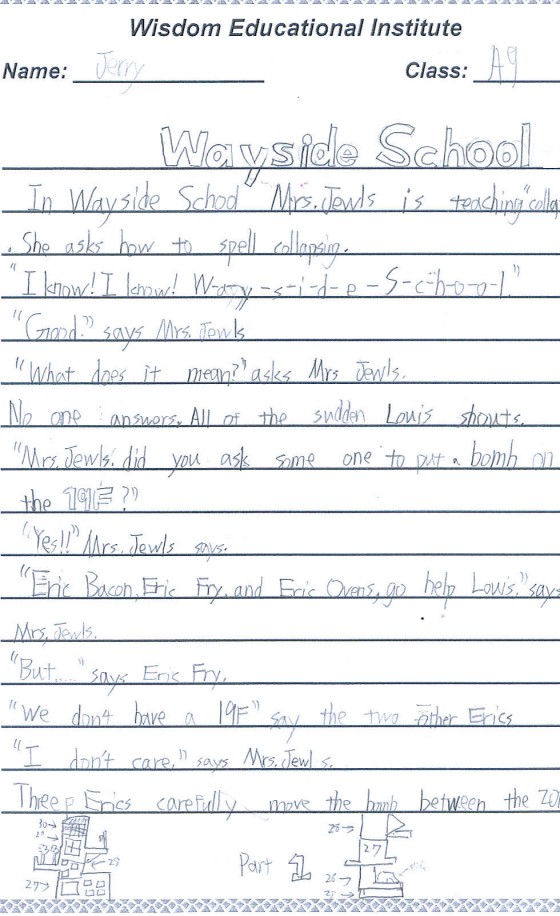 Wisdom Educational Institute
Name: Jerry Class: A9
Wayside School
In Wayside School Mrs. Jewls is teaching "colla
. She asks how to spell collapsing.
"I know! I know! W-a-y-s-i-d-e-S-c-h-o-o-l."
"Good." says Mrs. Jewls
"What does it mean?" asks Mrs Jewls.
No one answers. All of the sudden Louis shouts.
"Mrs. Jewls. did you ask some one to put a bomb on
the 19F?"
"Yes!!" Mrs. Jewls says.
"Eric Bacon, Eric Fry, and Eric Ovens, go help Louis." says
Mrs. Jewls.
"But....." says Eric Fry.
"We don't have a 19F" say the two other Erics
"I don't care." says Mrs. Jewls.
Three Erics carefully move the bomb between the 20
30→
29→
28
27→
Part 1
28→
27
26→
25→